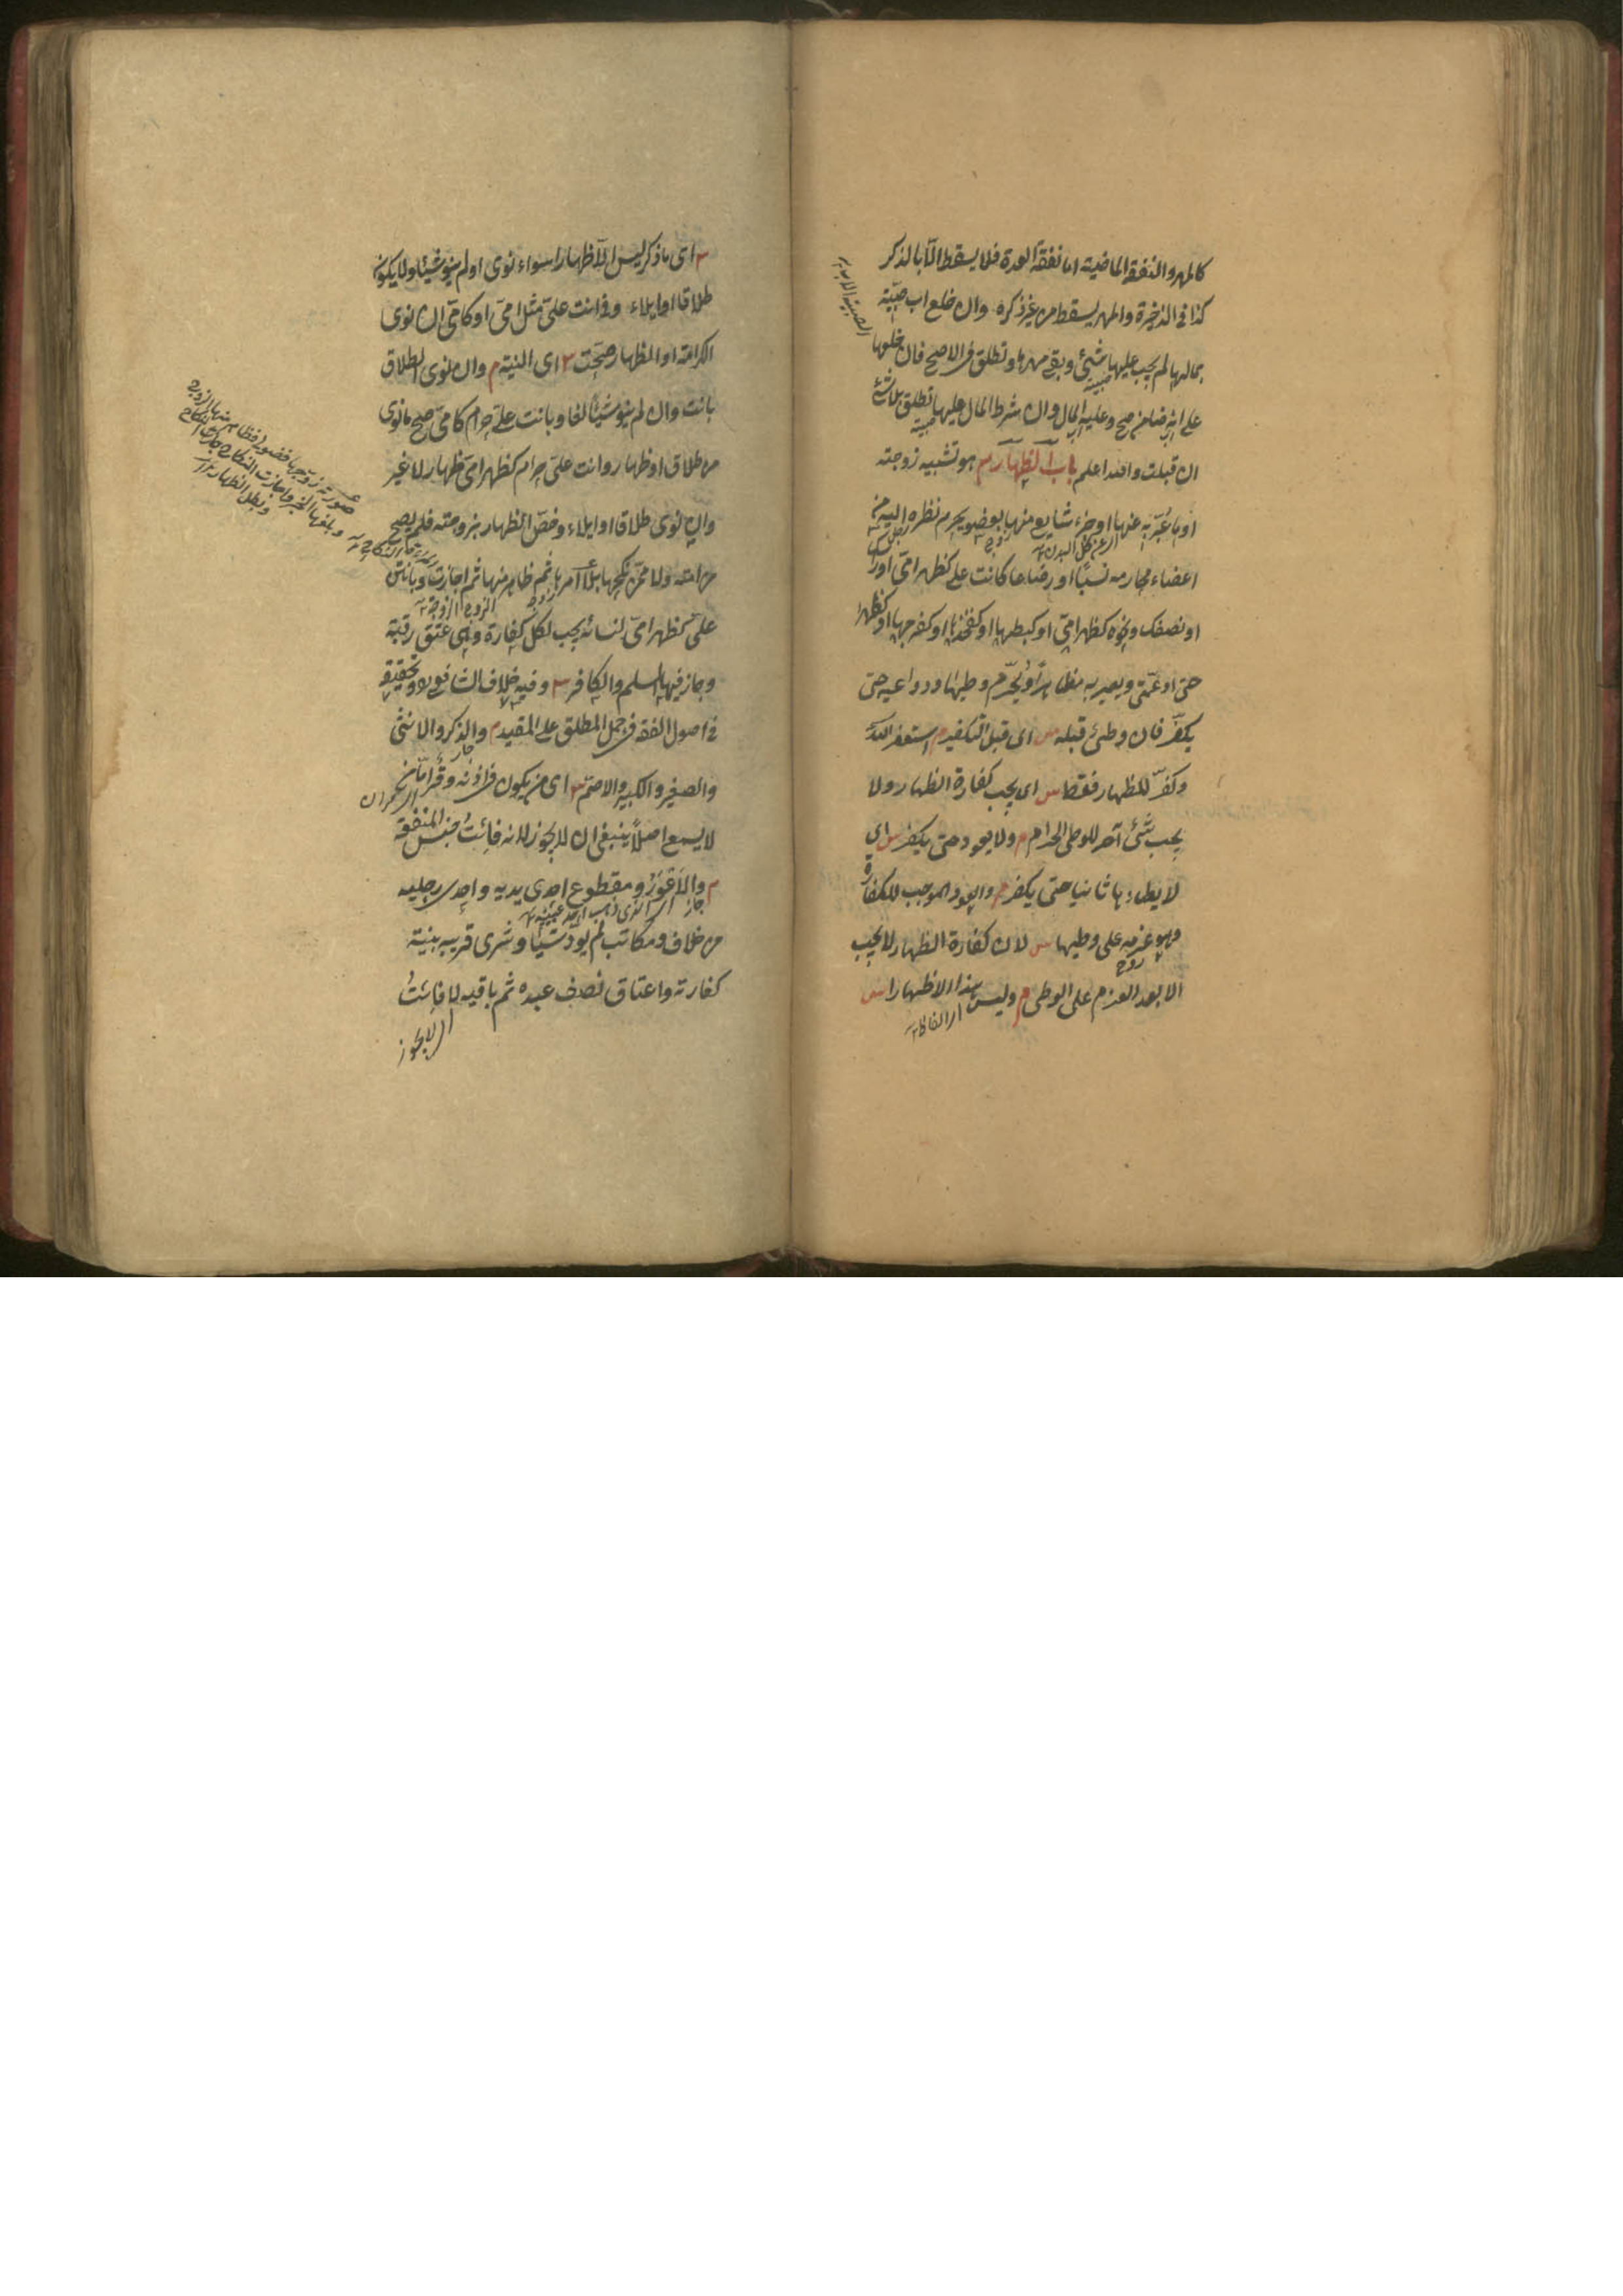 كالمهر والنفقة الماضية اما نفقة العدة فلا يسقط الّا بالذكر
كذا في الذخيرة والمهر يسقط من غير ذكره وان خلع اب صبيّة
بمالها لم يجب عليها شيئ وبقي مهرها وتطلق في الاصح فان خلعها
على انه ضامن صح وعليه المال وان شرط المال عليها تطلق بلا شئ
ان قبلت والله اعلم باب الظهار س هو تشبيه زوجته
او ما عُبّر به عنها او جزء شايع منها بعضو يحرم نظره اليه من
اعضاء محارمه نسبًا او رضاعا كانت علي كظهر امّي او راسك
او نصفك ونحوه كظهر امّي او كبطنها او كفخذها او كفرجها او كظهر
اختي او عمّتي ويصير به مظاهرًا ويُحرّم وطيها ودواعيه حتى
يكفّر فان وطئ قبله س اي قبل التكفير م استغفر الله
وكفّر للظهار فقط س اي يجب كفارة الظهار ولا
يجب شئ آخر للوطي الحرام م ولا يعود حتى يكفر س اي
لا يطاءها ثانيا حتى يكفر م والعود الموجب للكفارة
هو عزمه على وطيها س لان كفارة الظهار لا يجب
الا بعد العزم على الوطي م وليس هذا الا ظهارا س
س اي ما ذكر ليس الّا ظهارا سواء نوى او لم ينو شيئا ولا يكون
طلاقا او ايلاء وفي انت عليّ مثل امّي او كامّي ان نوى
الكرامة او الظهار صحّت س اى النية م وان نوى الطلاق
بانت وان لم ينو شيئًا لغا وبانت عليّ حرام كامّي صح ما نوى
من طلاق او ظهار وانت عليّ حرام كظهر امّي ظهار لا غير
وان نوى طلاقا او ايلاء وخصّ الظهار بزوجته فلم يصح
من امته ولا ممّن نكحها بلا امرها ثم ظاهر منها ثم اجازت وبانتن
عليّ كظهر امّي لنسائه يجب لكل كفارة وهي عتق رقبة
وجاز فيها المسلم والكافر س وفيه خلاف الشافعي وتحقيقه
في اصول الفقه في حمل المطلق على المقيد م والذكر والانثى
والصغير والكبير والاصمّ س اى من يكون في اذنه وقر امّا من
لا يسمع اصلاً ينبغي ان لا يجوز لانه فائت جنس المنفعة
م والاعور ومقطوع احدى يديه واحدى رجليه
من خلاف ومكاتب لم يؤد شيئا وشرى قريبه بنية
كفارته واعتاق نصف عبده ثم باقيه لا فائت
صورته زوّجها فضولي فظاهر منها الزوج
وبلغها الخبر واجازت النكاح جاز النكاح
وبطل الظهار
اي لا يجوز